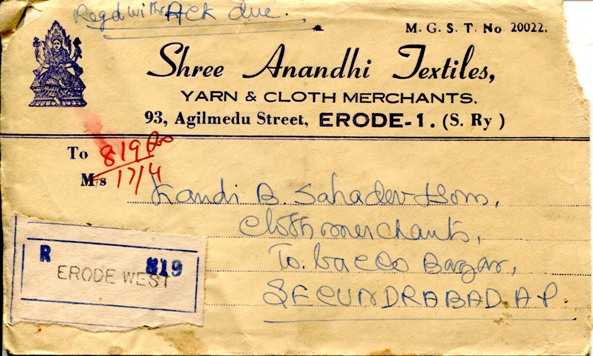 Regd with Ack due.
M. G. S. T. No 20022.
Shree Anandhi Textiles,
YARN & CLOTH MERCHANTS.
93, Agilmedu Street, ERODE-1. (S. Ry )
To
819
M/s
17/4
Kandi B. Sahadev & Sons,
Cloth merchants,
To. bacco Bazar,
SECUNDRABAD. A.P.
R 819
ERODE WEST